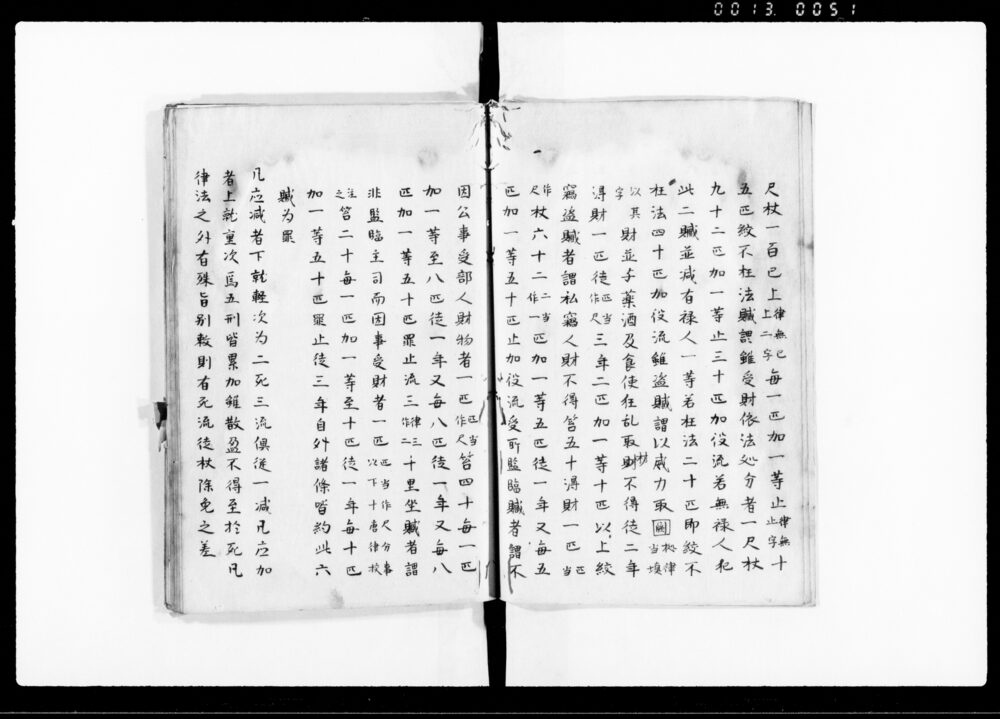 0013.0051
尺杖一百已上律無已上二字每一匹加一等止律無止字十
五匹絞不枉法贓謂雖受財依法処分者一尺杖
九十二匹加一等止三十匹加役流若無禄人犯
此二贓並减有禄人一等若枉法二十匹即絞不
枉法四十匹加役流雖盜贓謂以威力取闕拠律当塡
以其字財並与藥酒及食使狂乱取財不得徒二年
淂財一匹匹当作尺徒三年二匹加一等十匹以上絞
竊盜贓者謂私竊人財不得笞五十淂財一匹匹当
作尺杖六十二二当作一匹加一等五匹徒一年又每五
匹加一等五十匹止加役流受所監臨贓者謂不
因公事受部人財物者一匹匹当作尺笞四十每一匹
加一等至八匹徒一年又每八匹徒一年又每八
匹加一等五十匹罪止流三律三作二千里坐贓者謂
非監臨主司而因事受財者一匹匹当作尺分事次下十唐律挍
之注笞二十每一匹加一等至十匹徒一年每十匹
加一等五十匹罪止徒三年自外諸條皆約此六
贓为罪
凡应减者下就軽次为二死三流俱従一减凡应加
者上就重次爲五刑皆累加雖数盈不得至於死凡
律法之外有殊旨别敕則有死流徒杖除免之差